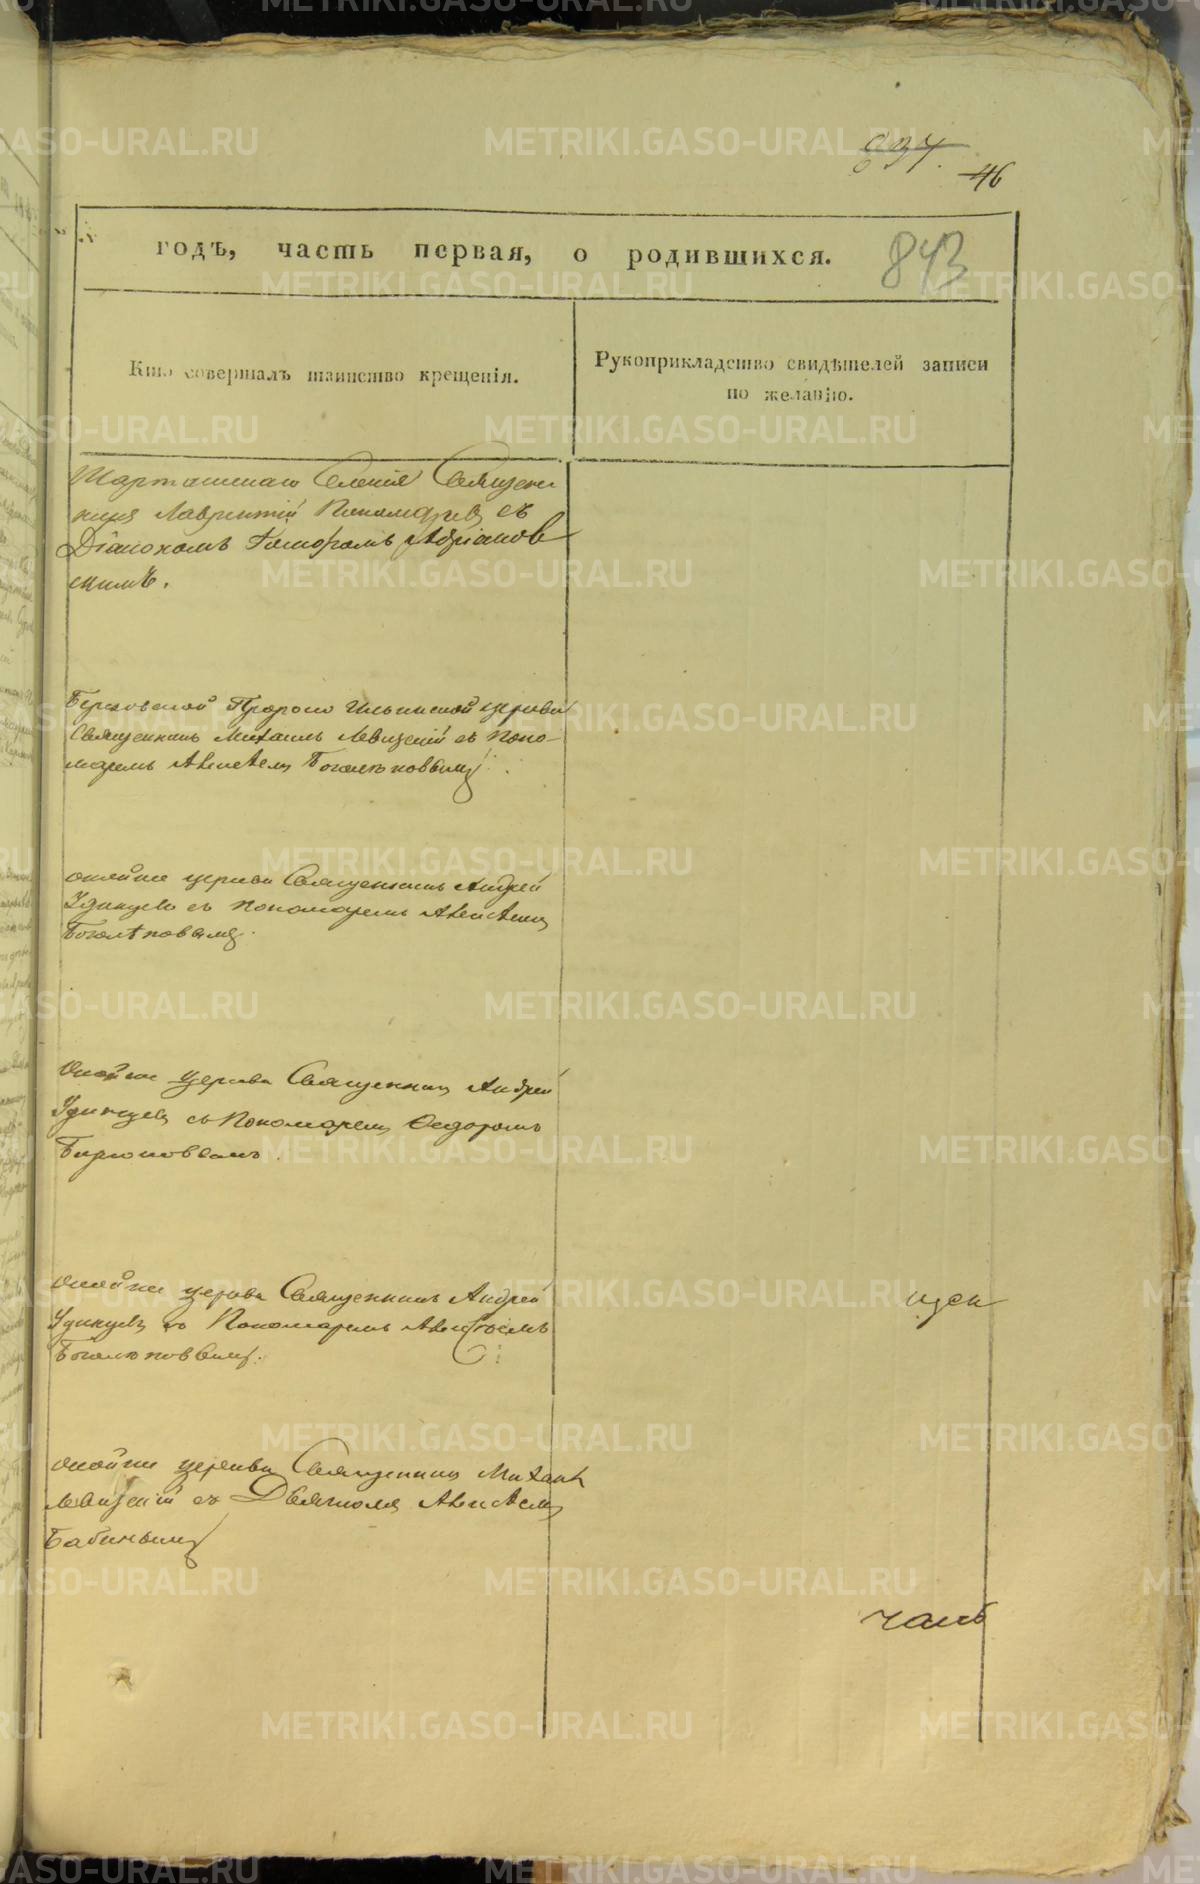 834.
46
годъ, часть первая, о родившихся.
843
Кто совершалъ таинство крещенія.
Рукоприкладство свидѣтелей записи
по желанію.
Шарташскаго Селенія Священ
никъ Лаврентій Пономаревъ съ
Діакономъ
скимъ.
Березовской Пророко Ильинской церкви
Священникъ Михаилъ Левицкій съ Поно-
маремъ Алексѣемъ Боголѣповымъ.
онойже церкви Священникъ Андрей
Удинцевъ съ Пономаремъ Алексѣемъ
Боголѣповымъ.
Онойже церкви Священникъ Андрей
Удинцевъ съ Пономаремъ Ѳедоромъ
Бирюковымъ.
Онойже церкви Священникъ Андрей
Удинцевъ съ Пономаремъ Алексѣемъ
Боголѣповымъ.
онойже церкви Священникъ Михаилъ
Левицкій съ Дьячкомъ Алексѣемъ
Бабинымъ
METRIKI.GASO-URAL.RU